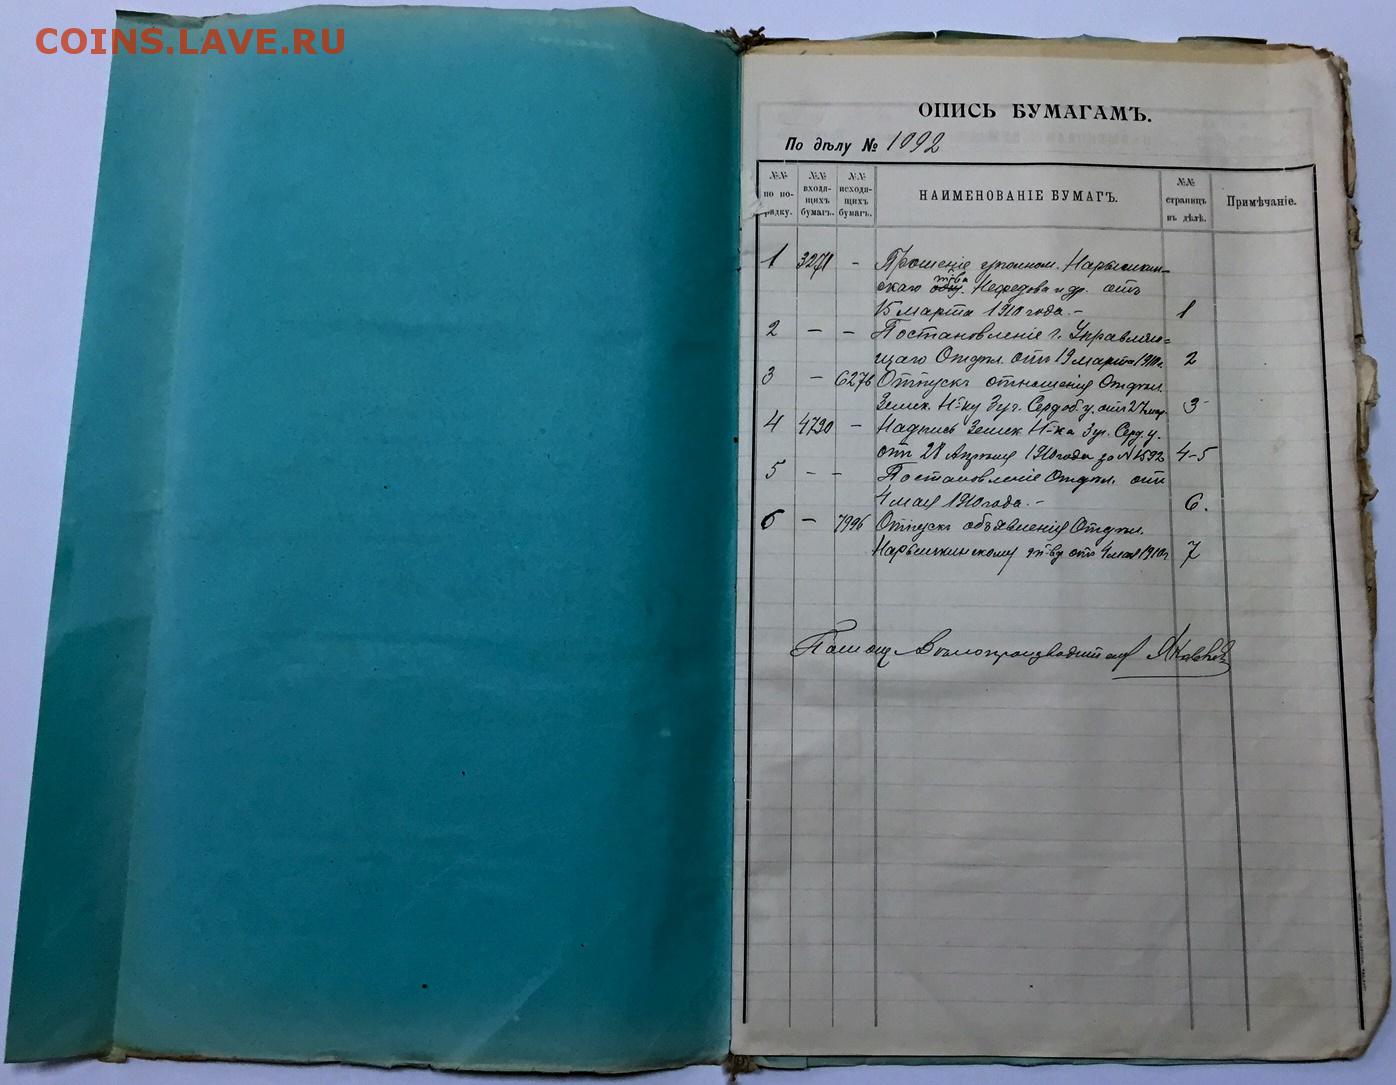 COINS.LAVE.RU
ОПИСЬ БУМАГАМЪ.
По дѣлу № 1092
№№ по по-рядку.
№№ входя-щихъ бумагъ.
№№ исходя-щихъ бумагъ.
НАИМЕНОВАНІЕ БУМАГЪ.
№№ страницъ въ дѣлѣ.
Примѣчаніе.
1 3271 - Прошеніе уполном. Нарышкин-
т-ва
скаго Нефедова и др. отъ
15 марта 1910 года. - 1
2 — — Постановленіе г. Управляю-
щаго Отдѣл. отъ 19 марта 1910г. 2
3 — 6276 Отпускъ отношенія Отдѣл.
Земск. Н-ку 3 уч. Сердоб. у. отъ 27 мар. 3
4 4730 - Надпись Земск. Н-ка 3 уч. Серд. у.
отъ 28 Апрѣля 1910 года за № 1592 4-5
5 - - Постановленіе Отдѣл. отъ
4 мая 1910 года. - 6.
6 — 7996 Отпускъ объявленія Отдѣл.
Нарышкинскому т-ву отъ 4 мая 1910 г. 7
Помощ. Дѣлопроизводителя